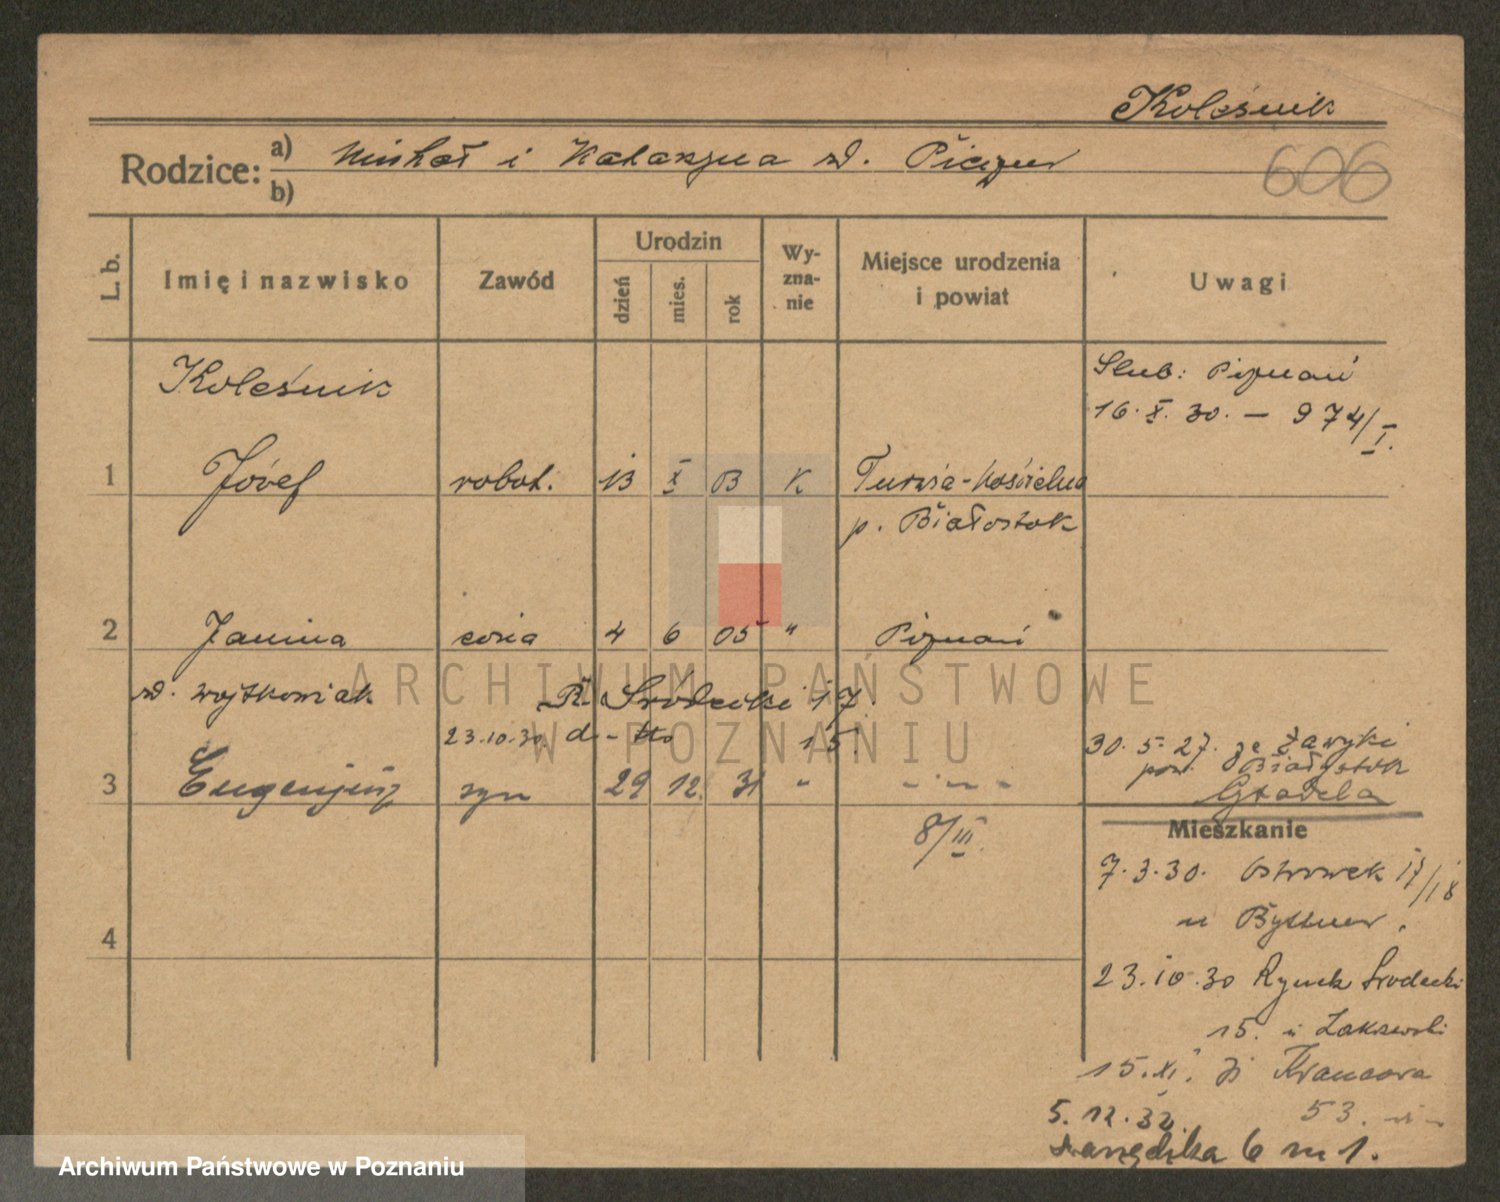 Koleśnik
Rodzice: a) Michał i Katarzyna
b)
606
L. b.
Imię i nazwisko
Zawód
Urodzin
dzień
mies.
rok
Wy-
zna-
nie
Miejsce urodzenia
i powiat
Uwagi
Koleśnik
Ślub: Poznań
16. X. 30. — 974/I.
1 Józef robot. 13 X 13 K Turośń-Kościelna
p. Białostok
2 Janina córka 4 6 05 " Poznań
zd. Wojtkowiak R. Śródecki 17.
23.10.30. d-tto 15.
30. 5. 27. ze Zawyki
pow. Białystok
3 Eugenjusz syn 29 12. 31 " - " - " -
8/III.
Mieszkanie
7.3.30. Ostrówek 17/18
u Byttner.
23.10.30 Rynek Śrudecki
15. u Zakrzewski
15. XI. 31 Krancowa
53.
5. 12. 32.
6 m 1.
4
ARCHIWUM PAŃSTWOWE
W POZNANIU
Archiwum Państwowe w Poznaniu